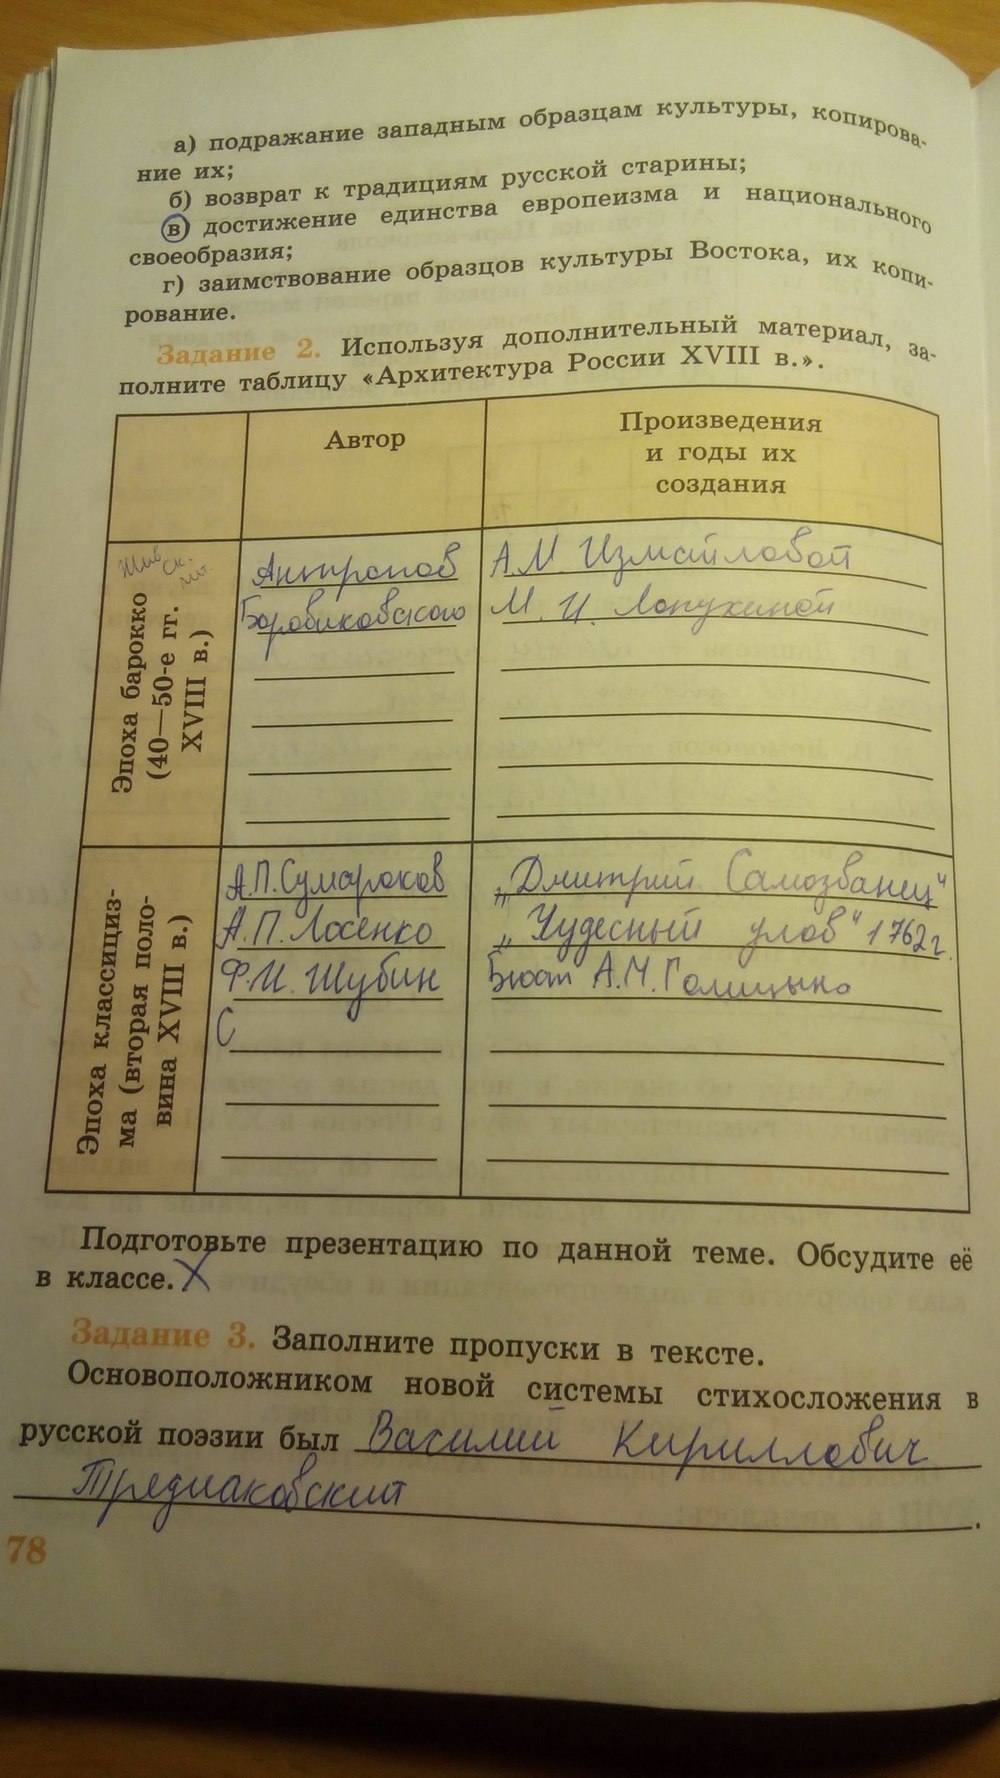 а) подражание западным образцам культуры, копирова-
ние их;
б) возврат к традициям русской старины;
в) достижение единства европеизма и национального
своеобразия;
г) заимствование образцов культуры Востока, их копи-
рование.
Задание 2. Используя дополнительный материал, за-
полните таблицу «Архитектура России XVIII в.».
Автор
Произведения
и годы их
создания
Жив
ск.
лит.
Эпоха барокко
(40—50-е гг.
XVIII в.)
Антропов
А.М. Измайловой
Боровиковского
М. И. Лопухиной
Эпоха классициз-
ма (вторая поло-
вина XVIII в.)
А.П.Сумароков
„Дмитрий Самозванец"
А.П.Лосенко
„Чудесный улов" 1762г.
Ф.И. Шубин
Бюст А.М.Голицына
С
Подготовьте презентацию по данной теме. Обсудите её
в классе. X
Задание 3. Заполните пропуски в тексте.
Основоположником новой системы стихосложения в
русской поэзии был Василий Кириллович
Тредиаковский.
78